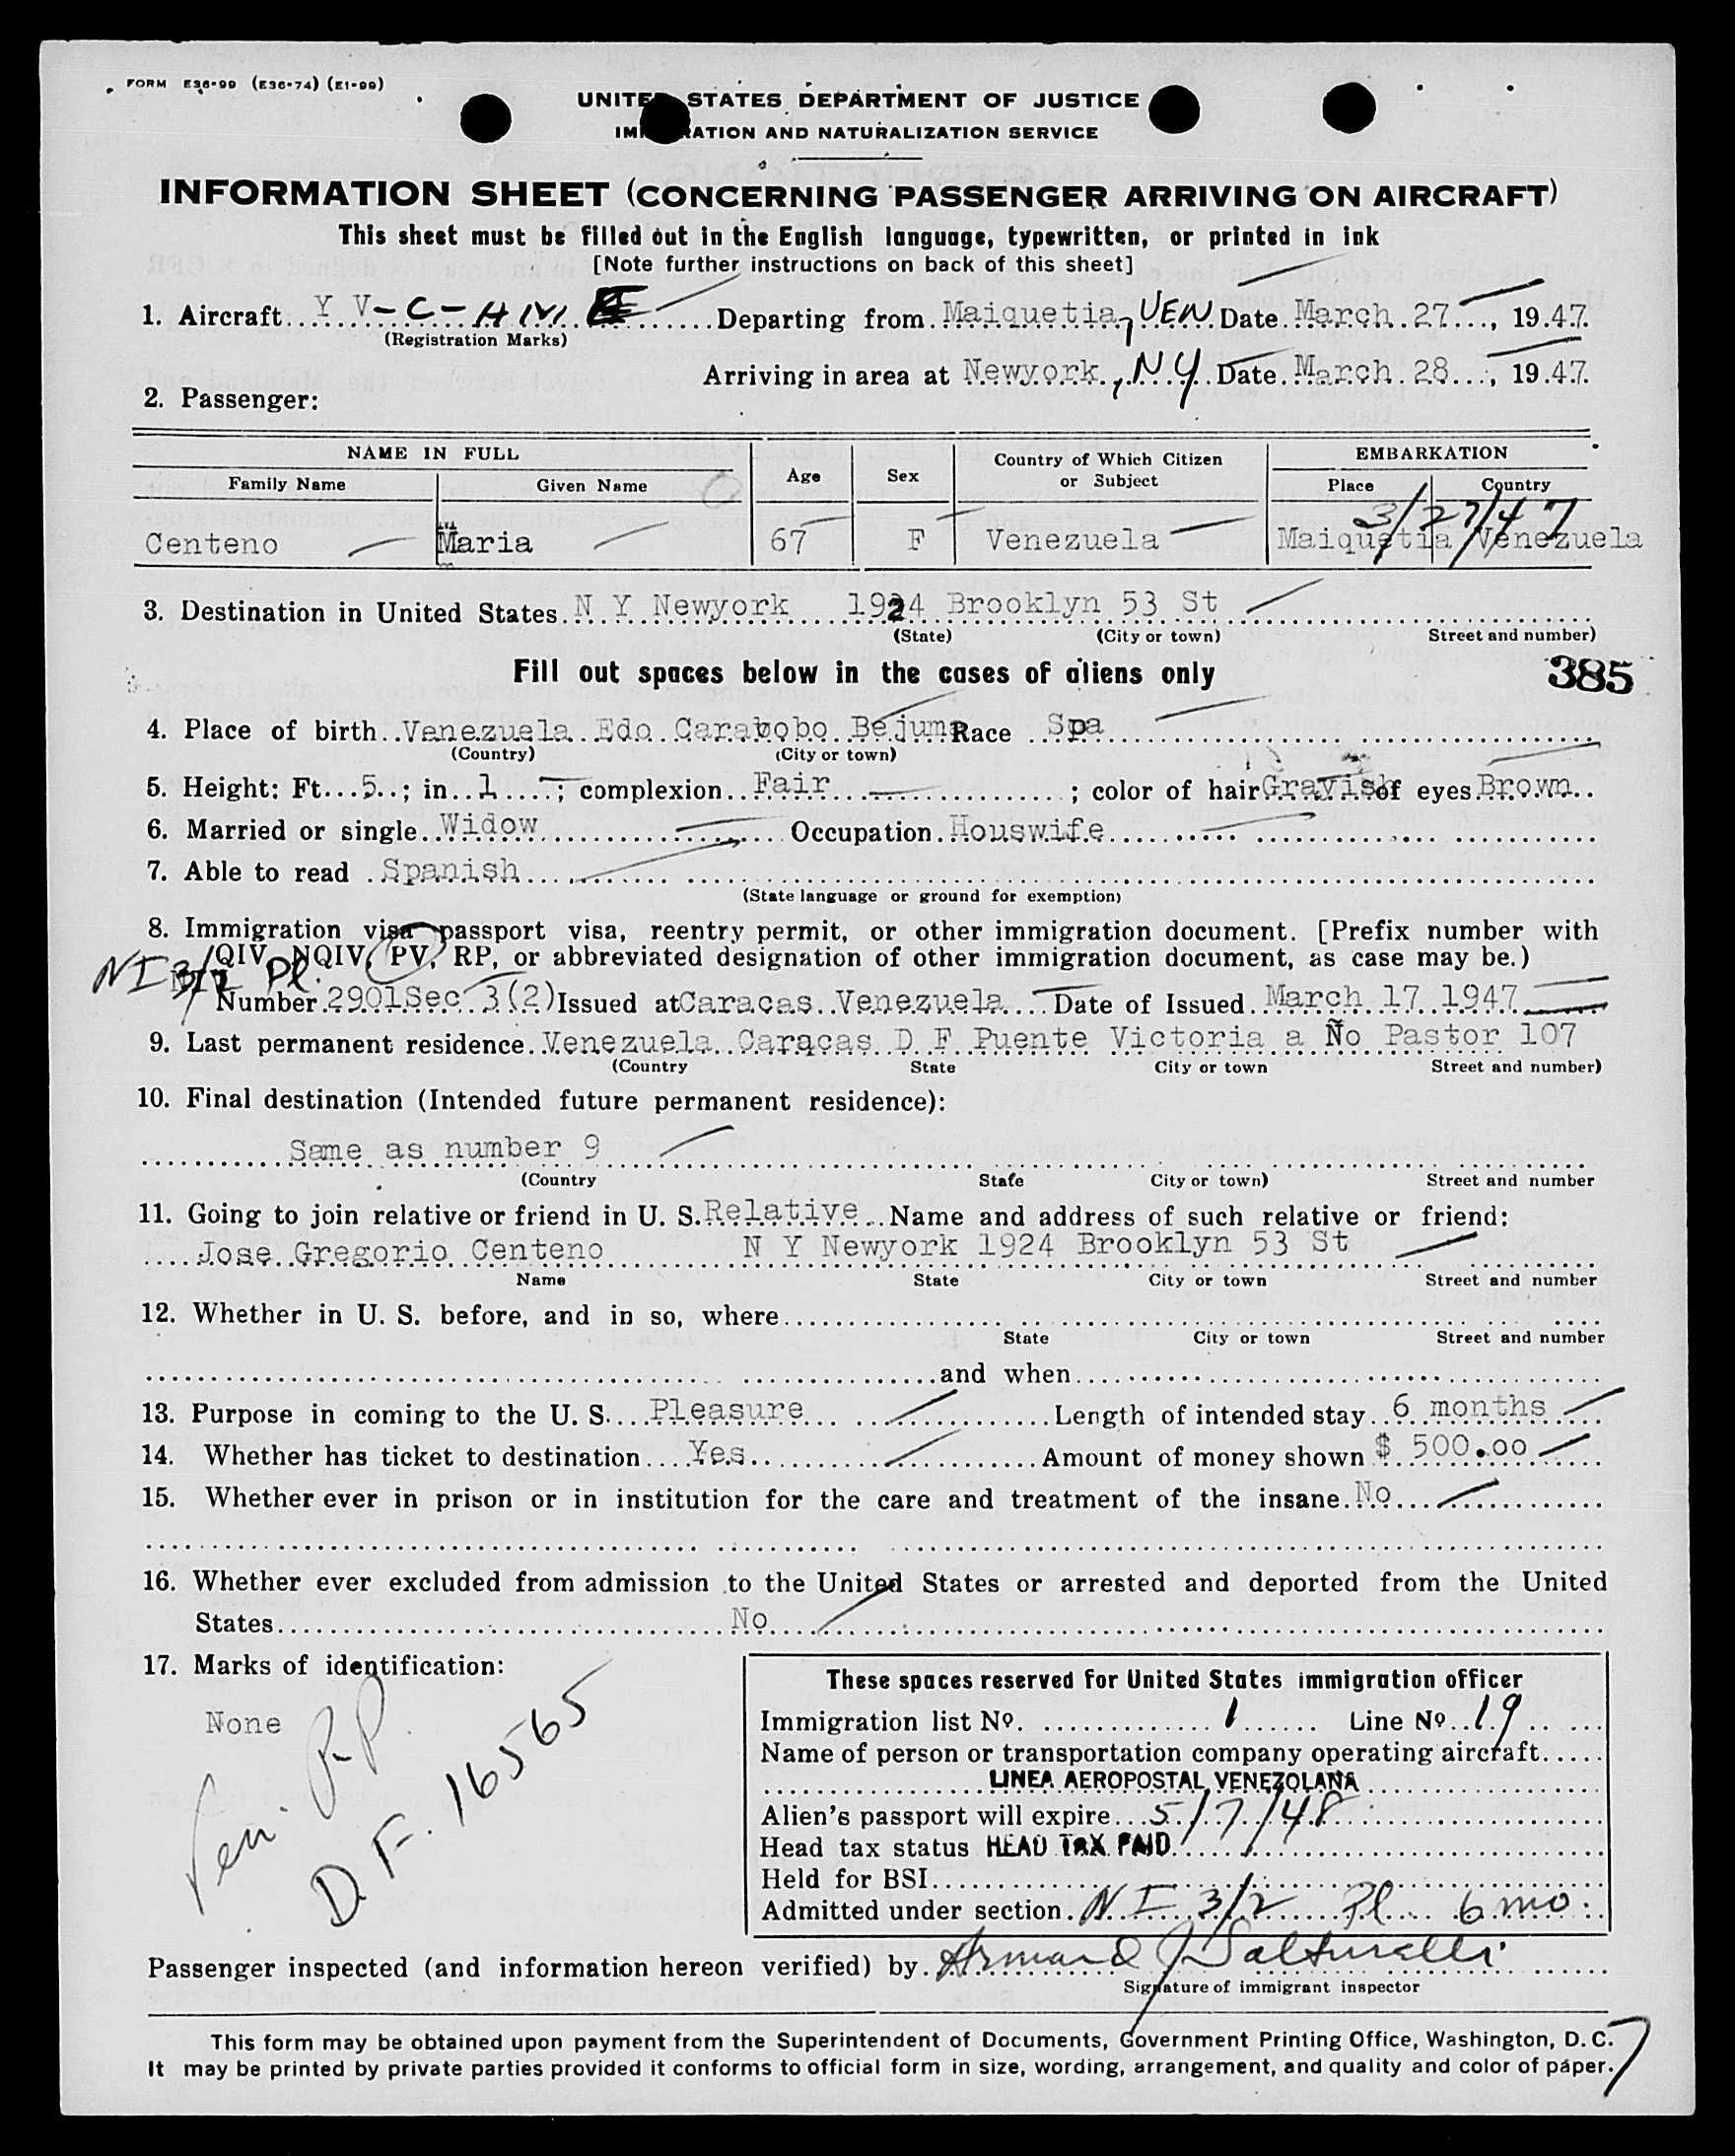 FORM E36-99 (E36-74) (E1-99)
UNITED STATES DEPARTMENT OF JUSTICE
IMMIGRATION AND NATURALIZATION SERVICE
INFORMATION SHEET (CONCERNING PASSENGER ARRIVING ON AIRCRAFT)
This sheet must be filled out in the English language, typewritten, or printed in ink
[Note further instructions on back of this sheet]
1. Aircraft Y V-C-A Departing from Maiquetia, VEN Date March 27, 1947
(Registration Marks)
Arriving in area at Newyork, NY Date March 28, 1947
2. Passenger:
NAME IN FULL Age Sex Country of Which Citizen or Subject EMBARKATION
Family Name Given Name Place Country
3/27/47
Centeno Maria 67 F Venezuela Maiquetia Venezuela
3. Destination in United States N Y Newyork 1924 Brooklyn 53 St
(State) (City or town) Street and number)
Fill out spaces below in the cases of aliens only 385
4. Place of birth Venezuela Edo Carabobo Bejuma Race Spa
(Country) (City or town)
5. Height: Ft. 5; in. 1; complexion Fair; color of hair Grayish of eyes Brown
6. Married or single Widow Occupation Houswife
7. Able to read Spanish
(State language or ground for exemption)
8. Immigration visa passport visa, reentry permit, or other immigration document. [Prefix number with
QIV, NQIV, PV, RP, or abbreviated designation of other immigration document, as case may be.)
NI 3/2 Pl.
Number 2901Sec 3(2) Issued at Caracas Venezuela Date of Issued March 17 1947
9. Last permanent residence Venezuela Caracas D F Puente Victoria a Ño Pastor 107
(Country State City or town Street and number)
10. Final destination (Intended future permanent residence):
Same as number 9
(Country State City or town) Street and number
11. Going to join relative or friend in U. S. Relative Name and address of such relative or friend:
Jose Gregorio Centeno N Y Newyork 1924 Brooklyn 53 St
Name State City or town Street and number
12. Whether in U. S. before, and in so, where
State City or town Street and number
and when
13. Purpose in coming to the U. S. Pleasure Length of intended stay 6 months
14. Whether has ticket to destination Yes Amount of money shown $ 500.00
15. Whether ever in prison or in institution for the care and treatment of the insane. No
16. Whether ever excluded from admission to the United States or arrested and deported from the United
States No
17. Marks of identification:
None
Ven. PP.
D.F. 16565
These spaces reserved for United States immigration officer
Immigration list Nº. 1 Line Nº 19
Name of person or transportation company operating aircraft
LINEA AEROPOSTAL VENEZOLANA
Alien's passport will expire 5/7/48
Head tax status HEAD TAX PAID
Held for BSI
Admitted under section NI 3/2 Pl 6 mo.
Passenger inspected (and information hereon verified) by Armand J Salturelli
Signature of immigrant inspector
This form may be obtained upon payment from the Superintendent of Documents, Government Printing Office, Washington, D. C.
It may be printed by private parties provided it conforms to official form in size, wording, arrangement, and quality and color of paper.